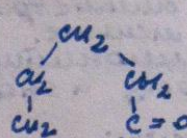 CH2
CH2 CH2
CH2 C=O